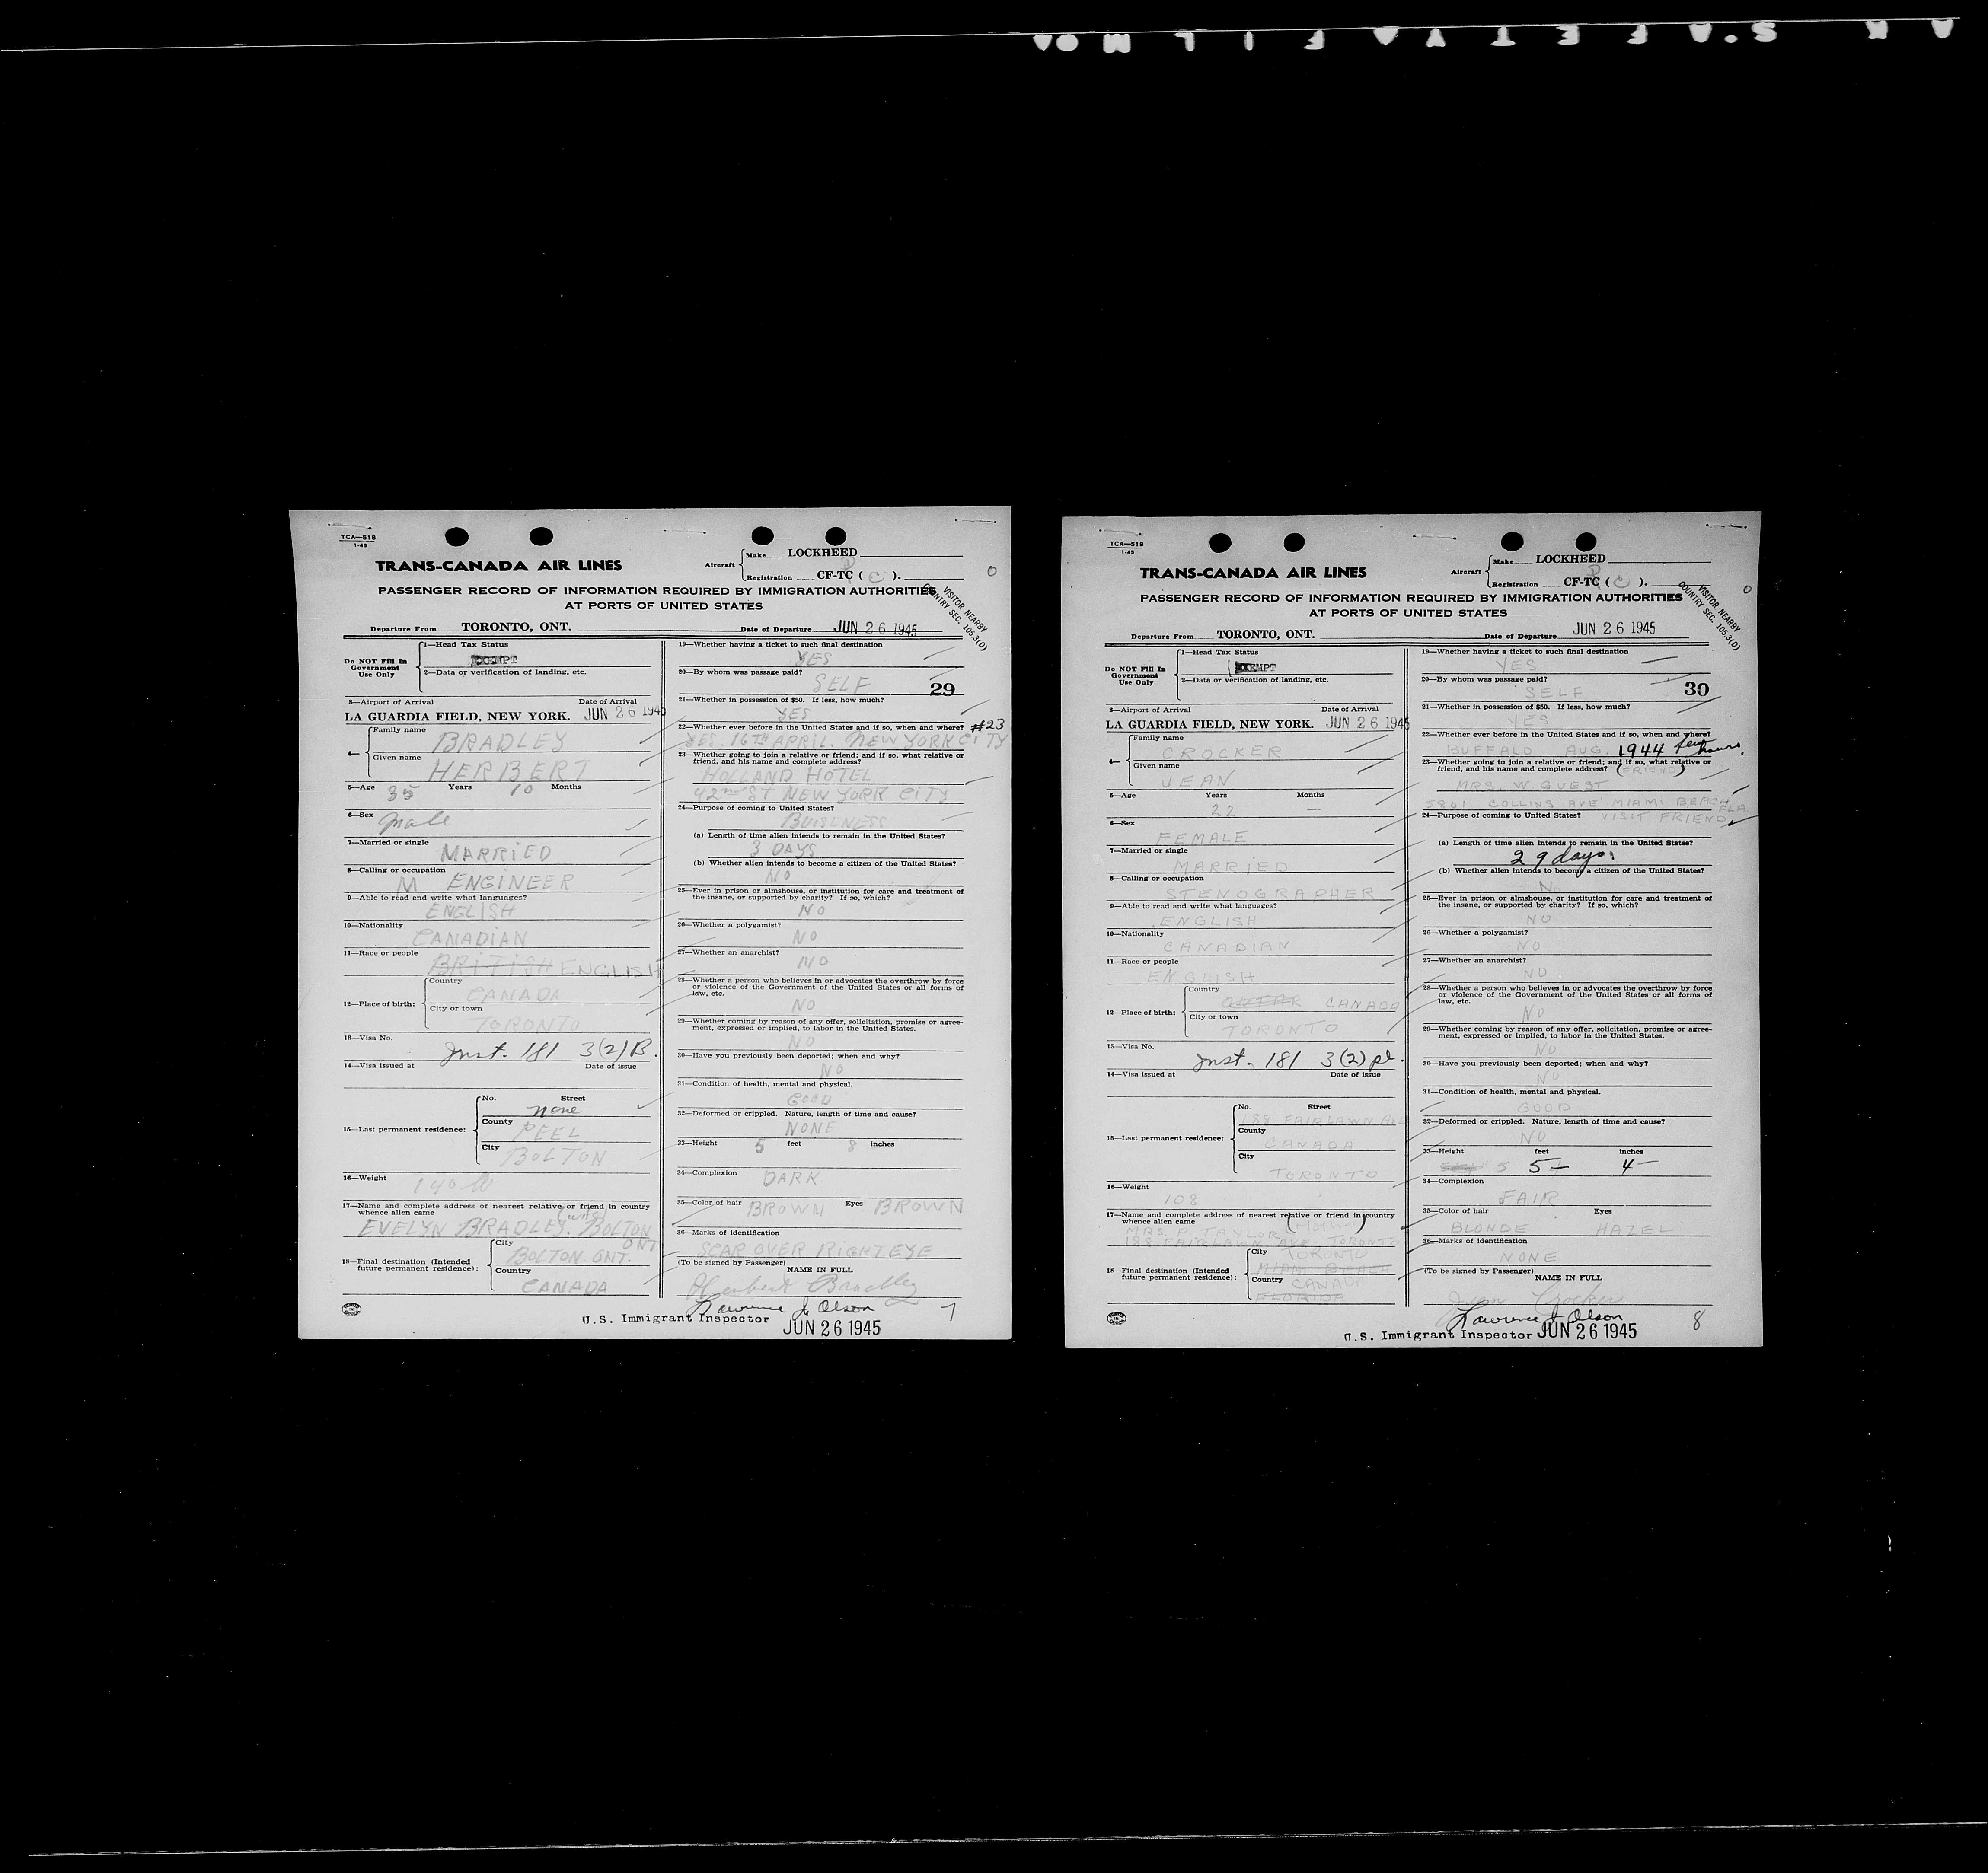 TCA—518
1-45
TRANS-CANADA AIR LINES
Aircraft
Make LOCKHEED
Registration CF-TC ( C ).
PASSENGER RECORD OF INFORMATION REQUIRED BY IMMIGRATION AUTHORITIES
AT PORTS OF UNITED STATES
VISITOR NEARBY
COUNTRY SEC. 105.3(D)
Departure From TORONTO, ONT.
Date of Departure JUN 26 1945
Do NOT Fill In
Government
Use Only
1—Head Tax Status
EXEMPT
2—Data or verification of landing, etc.
3—Airport of Arrival Date of Arrival
LA GUARDIA FIELD, NEW YORK. JUN 26 1945
4—
Family name
BRADLEY
Given name
HERBERT
5—Age 35 Years 10 Months
6—Sex
male
7—Married or single
MARRIED
8—Calling or occupation
M ENGINEER
9—Able to read and write what languages?
ENGLISH
10—Nationality
CANADIAN
11—Race or people
BRITISH ENGLISH
12—Place of birth:
Country
CANADA
City or town
TORONTO
13—Visa No.
Inst. 181 3(2)B.
14—Visa issued at Date of issue
15—Last permanent residence:
No. Street
none
County
PEEL
City
BOLTON
16—Weight
140 lb
17—Name and complete address of nearest relative or friend in country
whence alien came (wife)
EVELYN BRADLEY. BOLTON
ONT
18—Final destination (Intended
future permanent residence):
City
BOLTON ONT.
Country
CANADA
19—Whether having a ticket to such final destination
YES
20—By whom was passage paid?
SELF
29
21—Whether in possession of $50. If less, how much?
YES
22—Whether ever before in the United States and if so, when and where? #23
YES 16TH APRIL. NEW YORK CITY
23—Whether going to join a relative or friend; and if so, what relative or
friend, and his name and complete address?
HOLLAND HOTEL
42nd ST NEW YORK CITY
24—Purpose of coming to United States?
BUISNESS
(a) Length of time alien intends to remain in the United States?
3 DAYS
(b) Whether alien intends to become a citizen of the United States?
NO
25—Ever in prison or almshouse, or institution for care and treatment of
the insane, or supported by charity? If so, which?
NO
26—Whether a polygamist?
NO
27—Whether an anarchist?
NO
28—Whether a person who believes in or advocates the overthrow by force
or violence of the Government of the United States or all forms of
law, etc.
NO
29—Whether coming by reason of any offer, solicitation, promise or agree-
ment, expressed or implied, to labor in the United States.
NO
30—Have you previously been deported; when and why?
NO
31—Condition of health, mental and physical.
GOOD
32—Deformed or crippled. Nature, length of time and cause?
NONE
33—Height 5 feet 8 inches
34—Complexion
DARK
35—Color of hair BROWN Eyes BROWN
36—Marks of identification
SCAR OVER RIGHT EYE
(To be signed by Passenger)
NAME IN FULL
Herbert Bradley
Lawrence J. Olson
U.S. Immigrant Inspector
JUN 26 1945
7
TCA—518
1-45
TRANS-CANADA AIR LINES
Aircraft
Make LOCKHEED
Registration CF-TC ( C ).
PASSENGER RECORD OF INFORMATION REQUIRED BY IMMIGRATION AUTHORITIES
AT PORTS OF UNITED STATES
VISITOR NEARBY
COUNTRY SEC. 105.3(D)
Departure From TORONTO, ONT.
Date of Departure JUN 26 1945
Do NOT Fill In
Government
Use Only
1—Head Tax Status
EXEMPT
2—Data or verification of landing, etc.
3—Airport of Arrival Date of Arrival
LA GUARDIA FIELD, NEW YORK. JUN 26 1945
4—
Family name
CROCKER
Given name
JEAN
5—Age Years Months
22 —
6—Sex
FEMALE
7—Married or single
MARRIED
8—Calling or occupation
STENOGRAPHER
9—Able to read and write what languages?
ENGLISH
10—Nationality
CANADIAN
11—Race or people
ENGLISH
12—Place of birth:
Country
CANADA
City or town
TORONTO
13—Visa No.
Inst. 181 3(2) pl.
14—Visa issued at Date of issue
15—Last permanent residence:
No. Street
188 FAIRLAWN AVE
County
CANADA
City
TORONTO
16—Weight
108
17—Name and complete address of nearest relative or friend in country
whence alien came (Mother)
MRS. P. TAYLOR
188 FAIRLAWN AVE TORONTO
18—Final destination (Intended
future permanent residence):
City TORONTO
MIAMI BEACH
Country CANADA
FLORIDA
19—Whether having a ticket to such final destination
YES
20—By whom was passage paid?
SELF
30
21—Whether in possession of $50. If less, how much?
YES
22—Whether ever before in the United States and if so, when and where?
BUFFALO AUG. 1944 few hours.
23—Whether going to join a relative or friend; and if so, what relative or
friend, and his name and complete address? (FRIEND)
MRS. W. GUEST
5801 COLLINS AVE MIAMI BEACH FLA.
24—Purpose of coming to United States? VISIT FRIEND
(a) Length of time alien intends to remain in the United States?
29 days.
(b) Whether alien intends to become a citizen of the United States?
No
25—Ever in prison or almshouse, or institution for care and treatment of
the insane, or supported by charity? If so, which?
NO
26—Whether a polygamist?
NO
27—Whether an anarchist?
NO
28—Whether a person who believes in or advocates the overthrow by force
or violence of the Government of the United States or all forms of
law, etc.
NO
29—Whether coming by reason of any offer, solicitation, promise or agree-
ment, expressed or implied, to labor in the United States.
NO
30—Have you previously been deported; when and why?
NO
31—Condition of health, mental and physical.
GOOD
32—Deformed or crippled. Nature, length of time and cause?
NO
33—Height feet inches
5 5— 4—
34—Complexion
FAIR
35—Color of hair Eyes
BLONDE HAZEL
36—Marks of identification
NONE
(To be signed by Passenger)
NAME IN FULL
Jean Crocker
Lawrence J. Olson
U.S. Immigrant Inspector JUN 26 1945
8